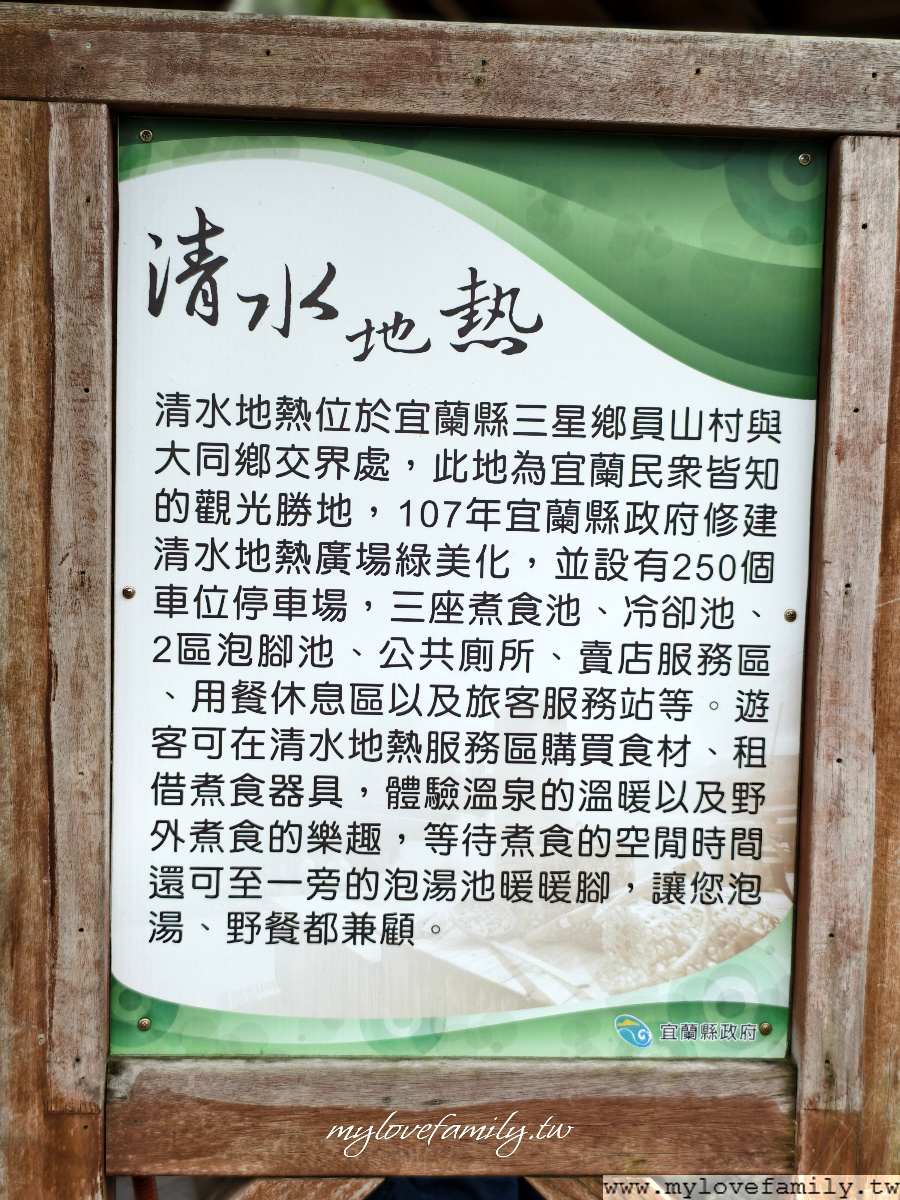 清水地熱
清水地熱位於宜蘭縣三星鄉員山村與
大同鄉交界處，此地為宜蘭民衆皆知
的觀光勝地，107年宜蘭縣政府修建
清水地熱廣場綠美化，並設有250個
車位停車場，三座煮食池、冷卻池、
2區泡腳池、公共廁所、賣店服務區
、用餐休息區以及旅客服務站等。遊
客可在清水地熱服務區購買食材、租
借煮食器具，體驗溫泉的溫暖以及野
外煮食的樂趣，等待煮食的空閒時間
還可至一旁的泡湯池暖暖腳，讓您泡
湯、野餐都兼顧。
宜蘭縣政府
mylovefamily.tw
www.mylovefamily.tw